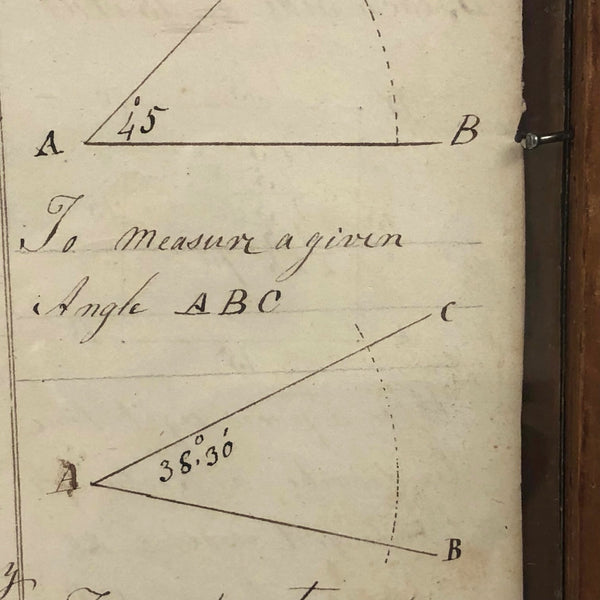 45°
A B
To measure a given
Angle ABC
C
38°.30'
A
B